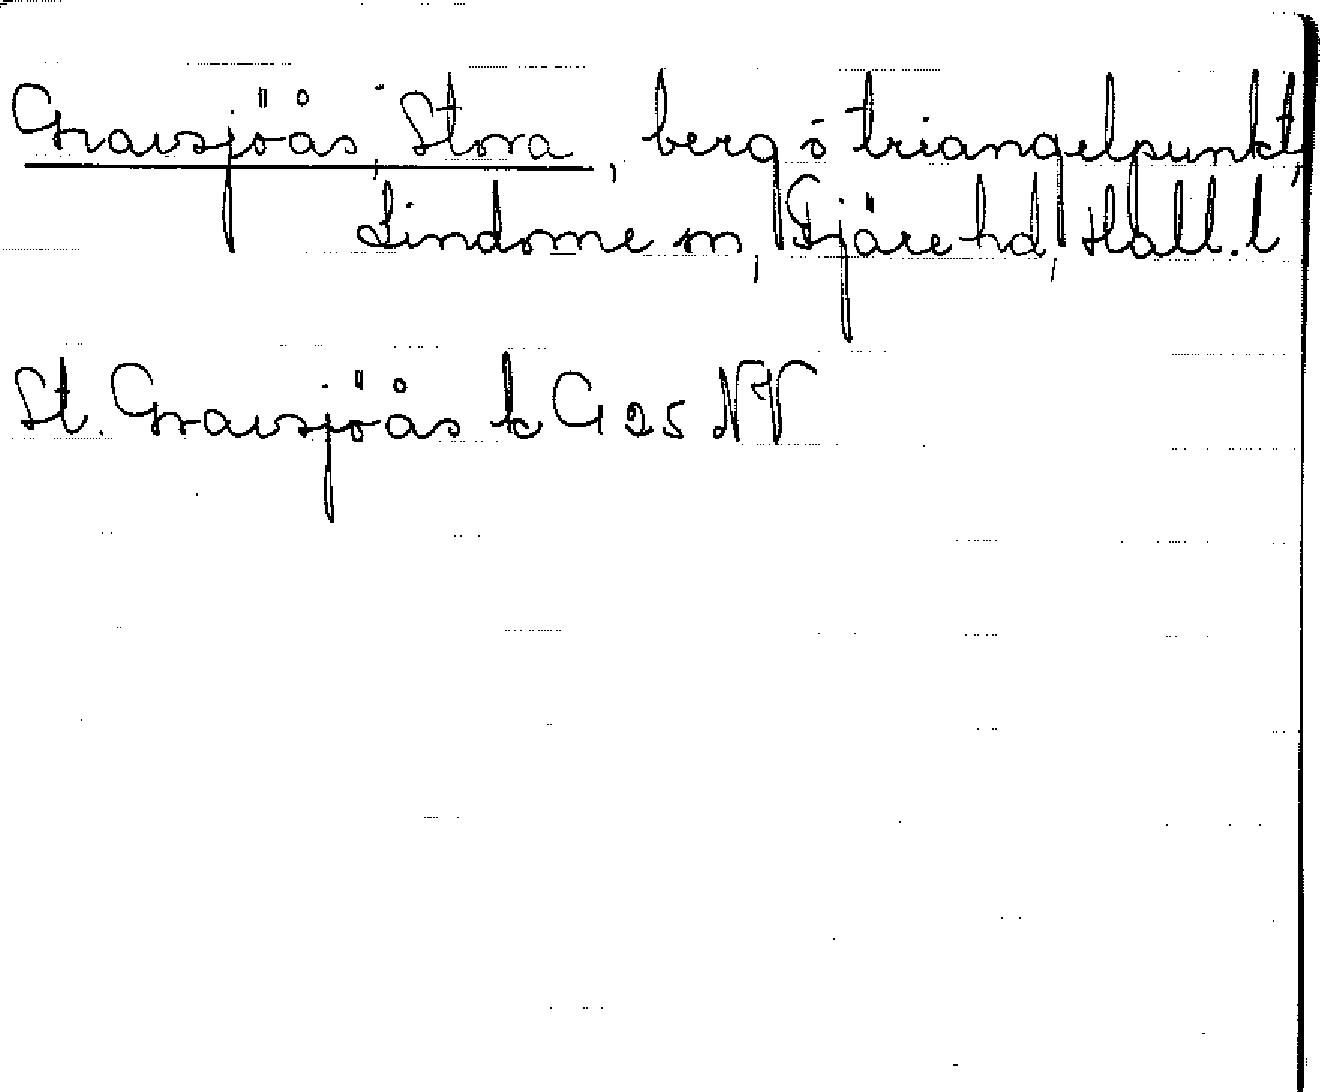 Gravsjöås, Stora, berg ö triangelpunkt,
Lindome sn, Fjäre hd, Hall. l
St. Gravsjöås k G 25 NV